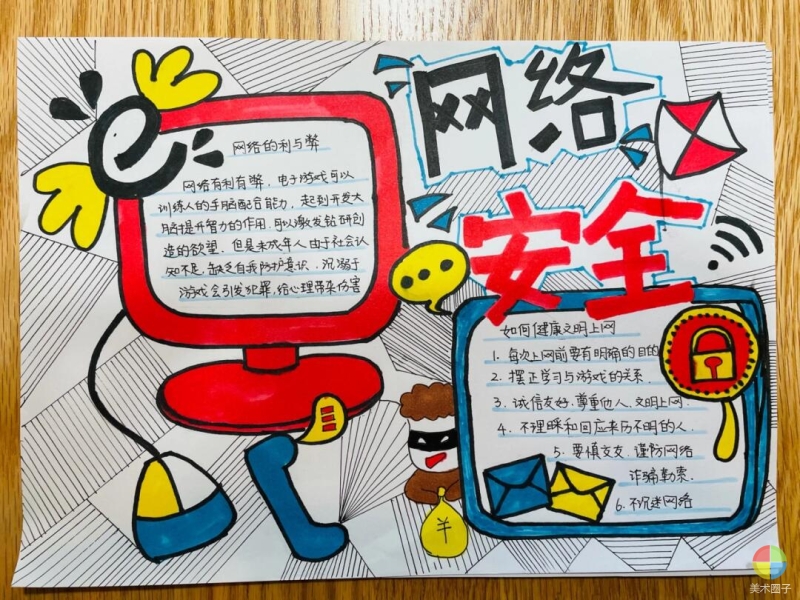 网络
安全
网络的利与弊
网络有利有弊，电子游戏可以
训练人的手脑配合能力，起到开发大
脑提升智力的作用.可以激发钻研创
造的欲望。但是未成年人由于社会认
知不足,缺乏自我防护意识，沉溺于
游戏会引发犯罪,给心理带来伤害
如何健康文明上网
1. 每次上网前要有明确的目的
2. 摆正学习与游戏的关系.
3. 诚信友好.尊重他人.文明上网.
4. 不理睬和回应来历不明的人.
5. 要慎交友.谨防网络
诈骗勒索.
6. 不沉迷网络
美术圈子